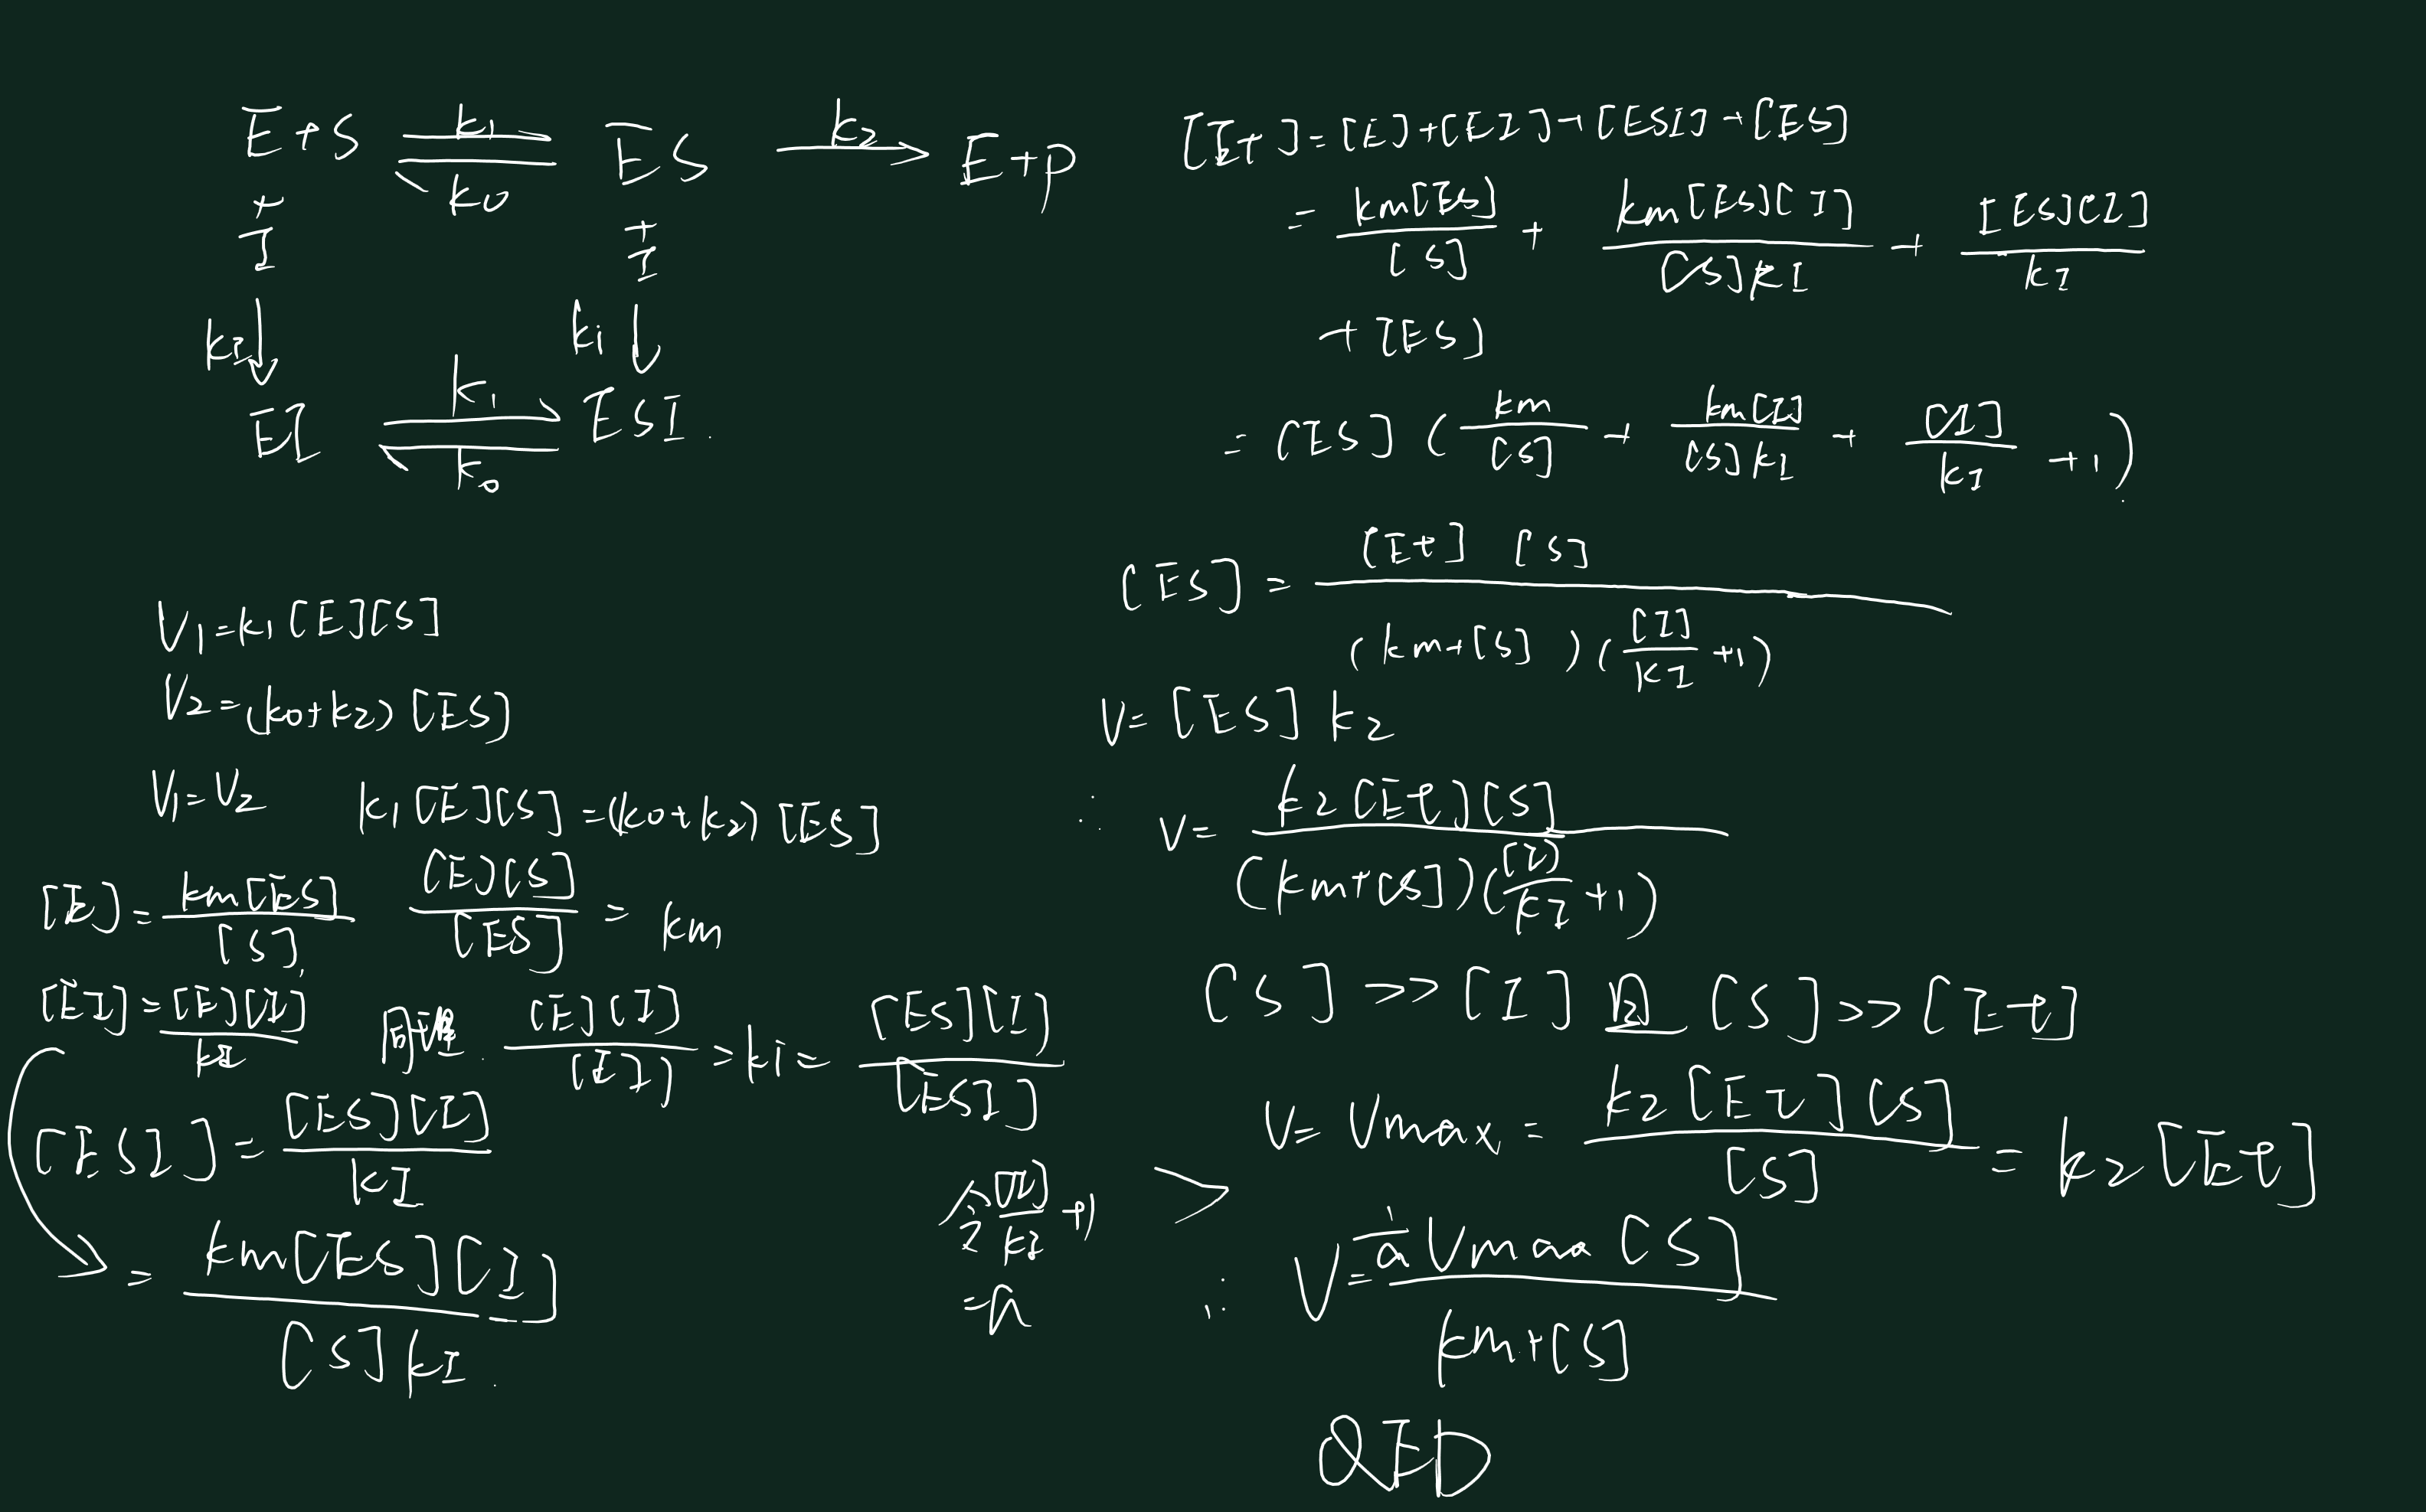 E+S ⇌ ES → E+p
k1 k2
k0
+ +
I I
kI ki
k1
EI ⇌ ESI
k0
V1=k1[E][S]
V2=(k0+k2)[ES]
V1=V2 k1[E][S]=(k0+k2)[ES]
[E]=km[ES]/[S] [E][S]/[ES]=km
[EI]=[E][I]/kI 同理. [E][I]/[EI]=ki=[ES][I]/[ESI]
[ESI]=[ES][I]/kI
=km[ES][I]/[S]kI
[Et]=[E]+[EI]+[ESI]+[ES]
=km[ES]/[S]+km[ES][I]/[S]kI+[ES][I]/kI
+[ES]
=[ES](km/[S]+km[I]/[S]kI+[I]/kI+1)
[ES]=[Et][S]/(km+[S])([I]/kI+1)
V=[ES]k2
∴ V=k2[Et][S]/(km+[S])([I]/kI+1)
[S]>>[I]且[S]>>[Et]
V=Vmax=k2[Et][S]/[S]=k2[Et]
令[I]/kI+1
=a
∴ V=1/a Vmax[S]/km+[S]
QED